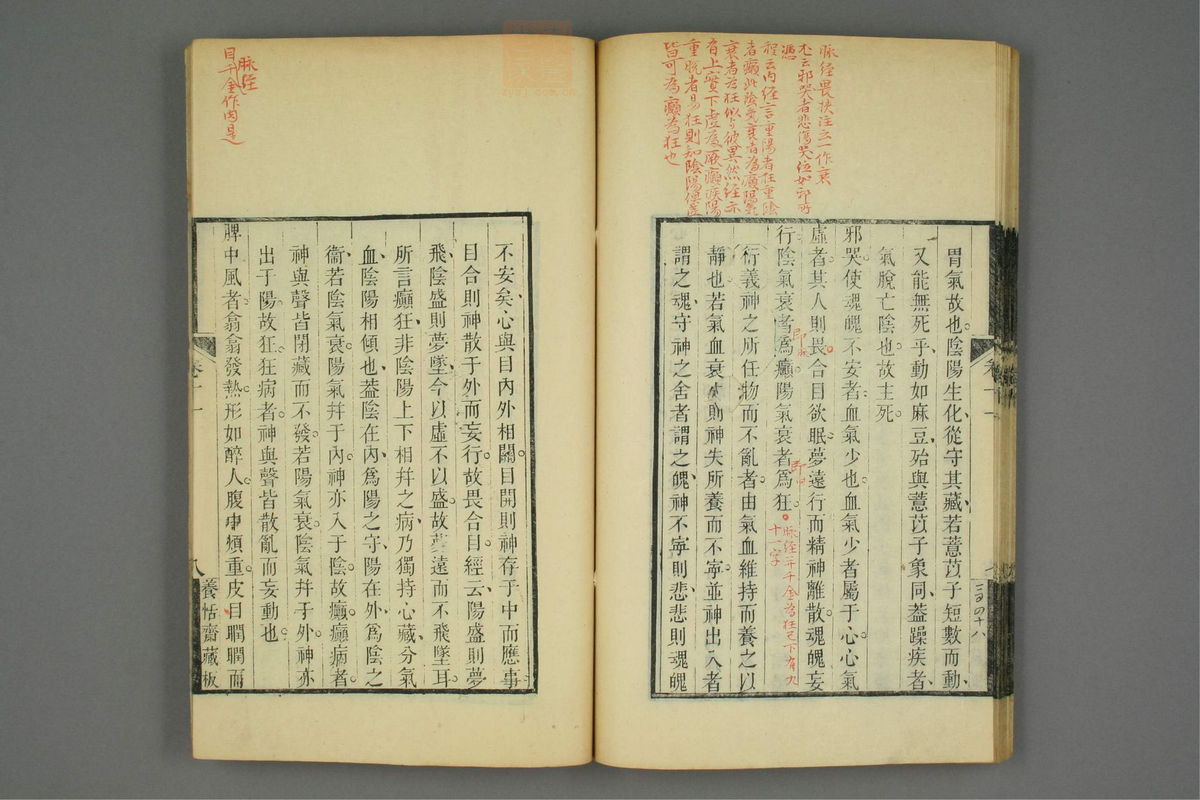 脉經畏扶注云一作衰
尤云邪哭者悲傷哭泣如邪所
憑
程云內經言重陽者狂重陰
者癲此陰氣衰者為癲陽氣
衰者為狂似與彼異然經亦
有上實下虛為厥癲疾陽
重脫者易狂則知陰陽俱虛
皆可為癲為狂也
胃氣故也陰陽生化從守其藏若薏苡子短數而動
又能無死乎動如麻豆殆與薏苡子象同葢躁疾者
氣脫亡陰也故主死
邪哭使魂魄不安者血氣少也血氣少者屬于心心氣
虛者其人則畏合目欲眠夢遠行而精神離散魂魄妄
行陰氣衰者爲癲陽氣衰者爲狂
脉經千金為狂已下有九
十一字
衍義神之所任物而不亂者由氣血維持而養之以
靜也若氣血衰少則神失所養而不寧並神出入者
謂之魂守神之舍者謂之魄神不寧則悲悲則魂魄
卷十一
不安矣心與目內外相關目開則神存于中而應事
目合則神散于外而妄行故畏合目經云陽盛則夢
飛陰盛則夢墜今以虛不以盛故夢遠而不飛墜耳
所言癲狂非陰陽上下相幷之病乃獨持心藏分氣
血陰陽相傾也葢陰在內爲陽之守陽在外爲陰之
衞若陰氣衰陽氣幷于內神亦入于陰故癲癲病者
神與聲皆閉藏而不發若陽氣衰陰氣幷于外神亦
出于陽故狂狂病者神與聲皆散亂而妄動也
脾中風者翕翕發熱形如醉人腹中煩重皮目瞤瞤而
脉經
目千金作肉是
卷十一
八
養恬齋藏板